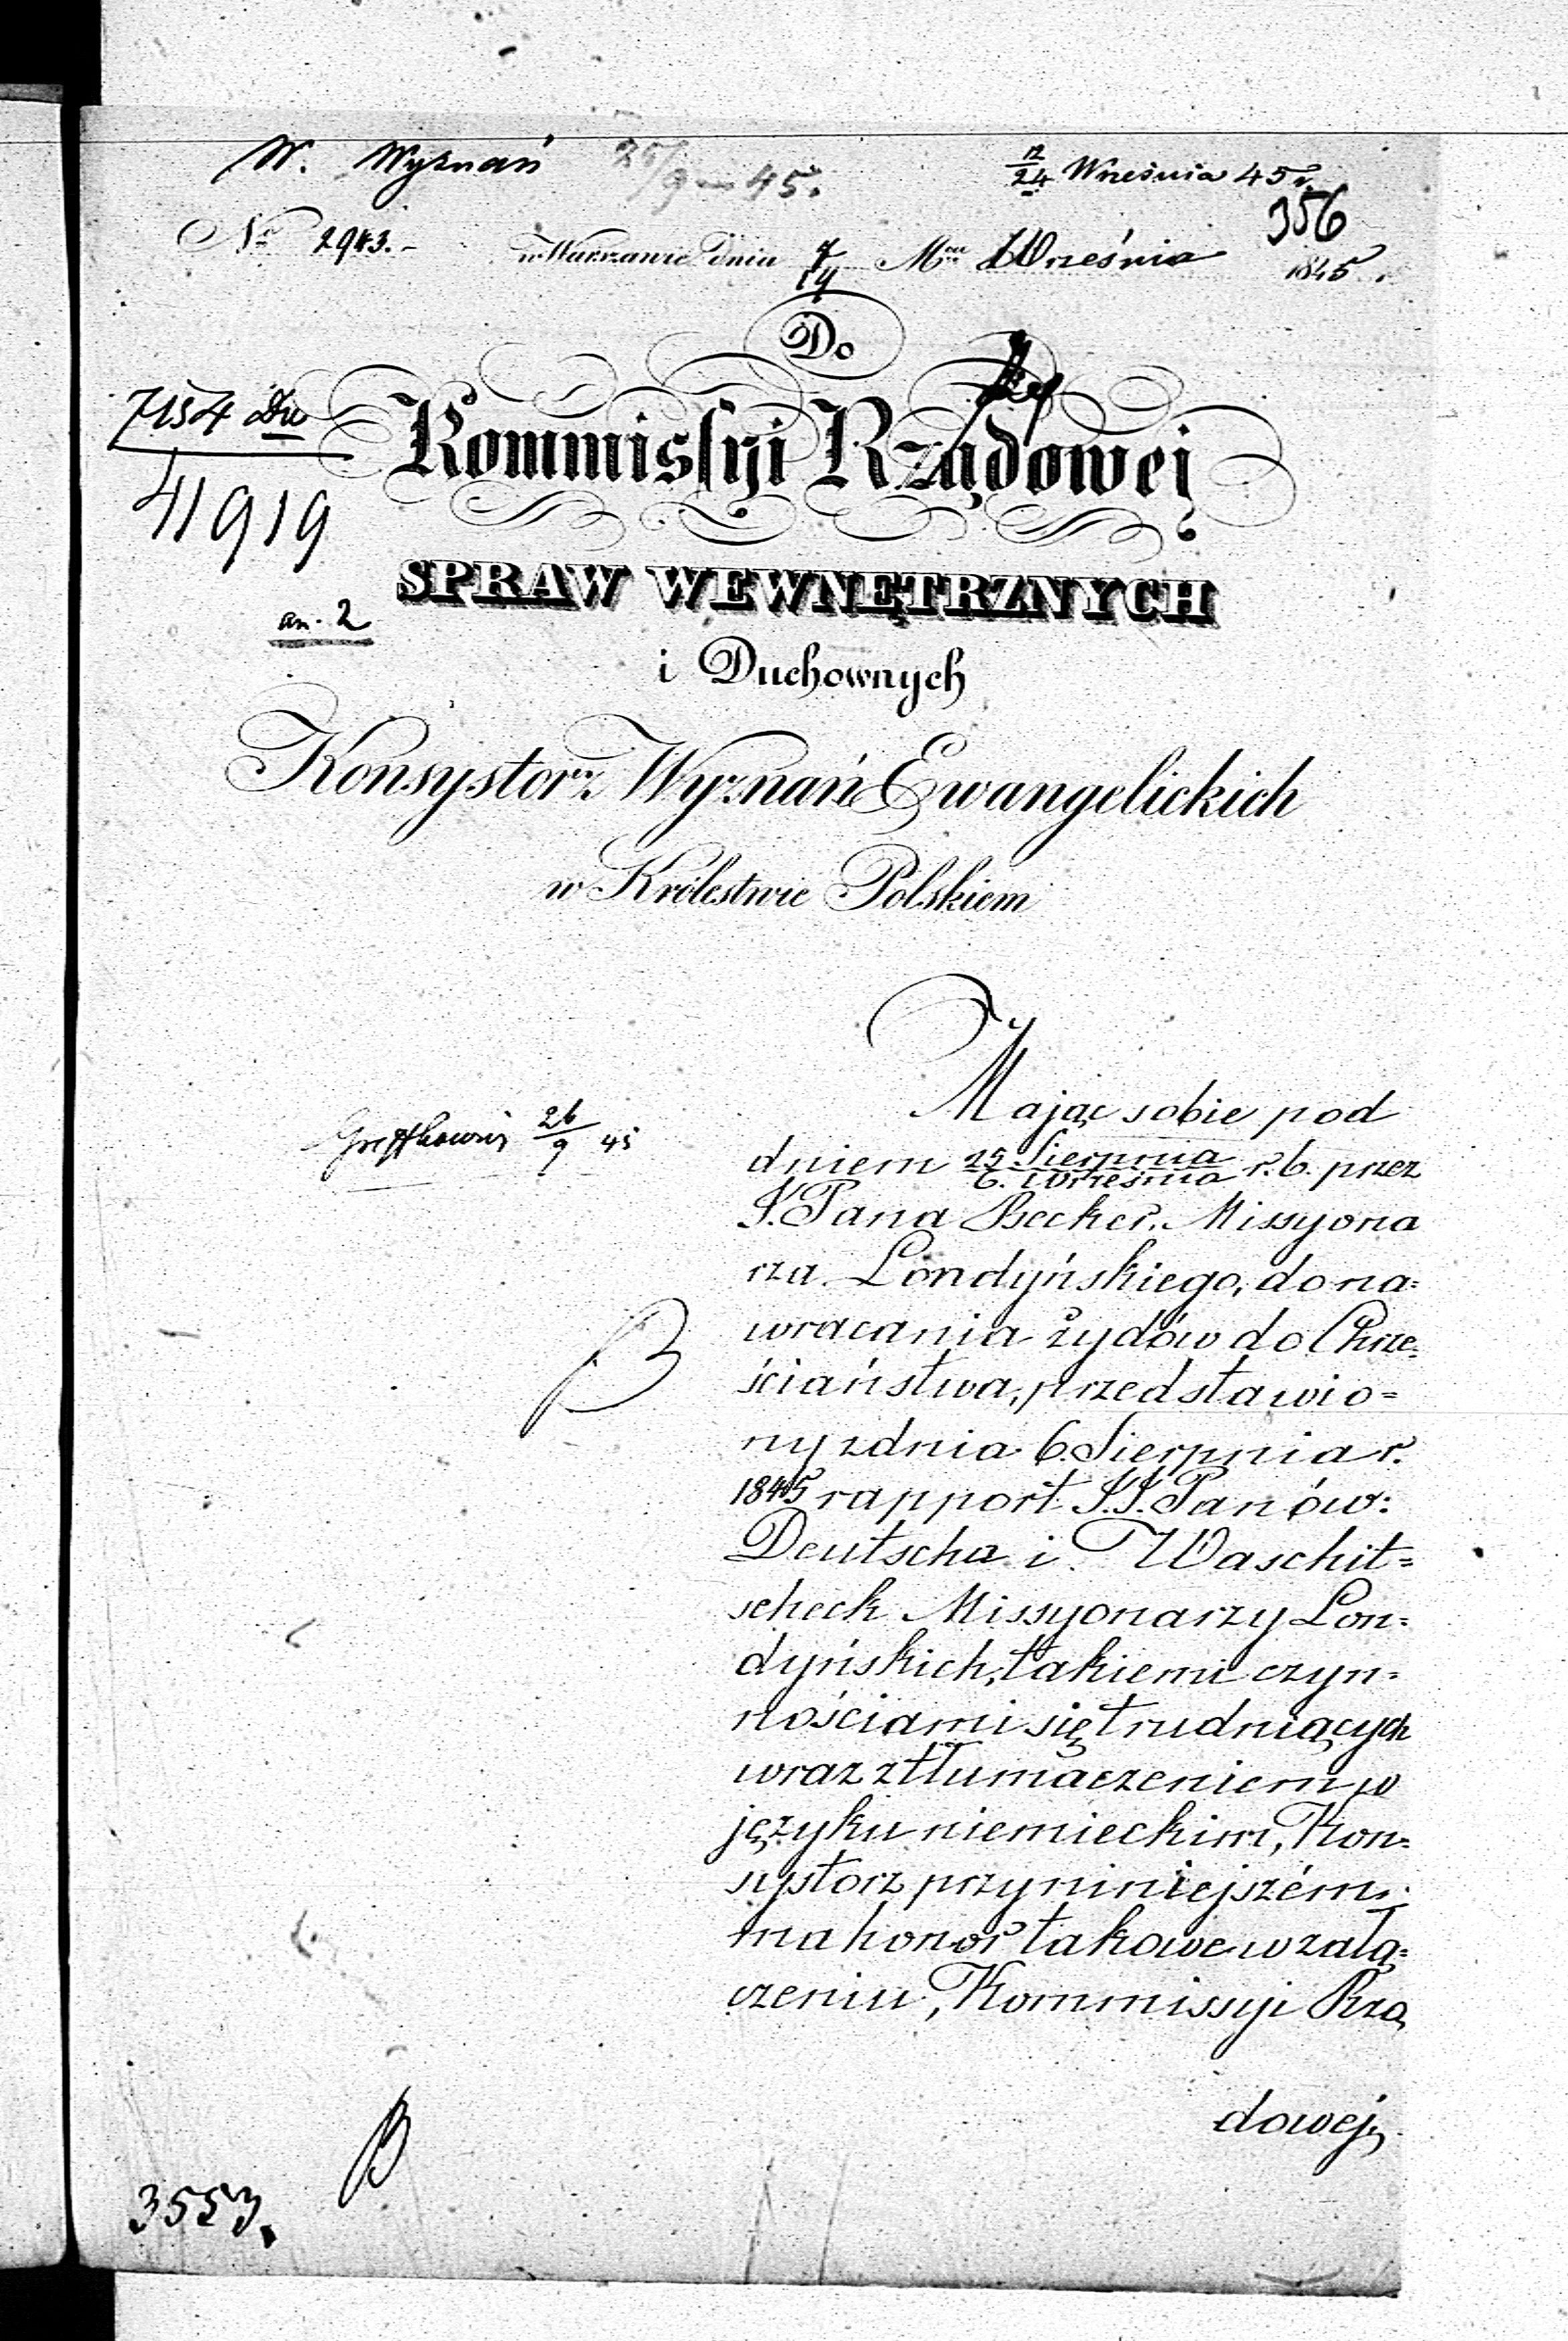 W. Wyznań 25/9 – 45.
12/24 Września 45 r.
356
No 2943.- w Warszawie dnia 7/19 Mca Września 1845.
Do
7154
41919
Kommissyi Rządowej
SPRAW WEWNĘTRZNYCH
an. 2
i Duchownych
Konsystorz Wyznań Ewangelickich
w Królestwie Polskiem
Mając sobie pod
26/9 45
dniem 25 Sierpnia/6. Września r. b. przez
J. Pana Becker, Missyona
rza Londyńskiego, do na=
wracania żydów do Chrze=
ściaństwa, przedstawio=
ny z dnia 6. Sierpnia r.
1845 rapport J.J. Panów:
Deutscha i Waschit=
scheck Missyonarzy Lon=
dyńskich, takiemi czyn=
nościami się trudniących
wraz z tłumaczeniem w
języku niemieckim, Kon=
systorz przy niniejszém
ma honor takowe w załą=
czeniu, Kommissyi Rzą
dowej,
3553.